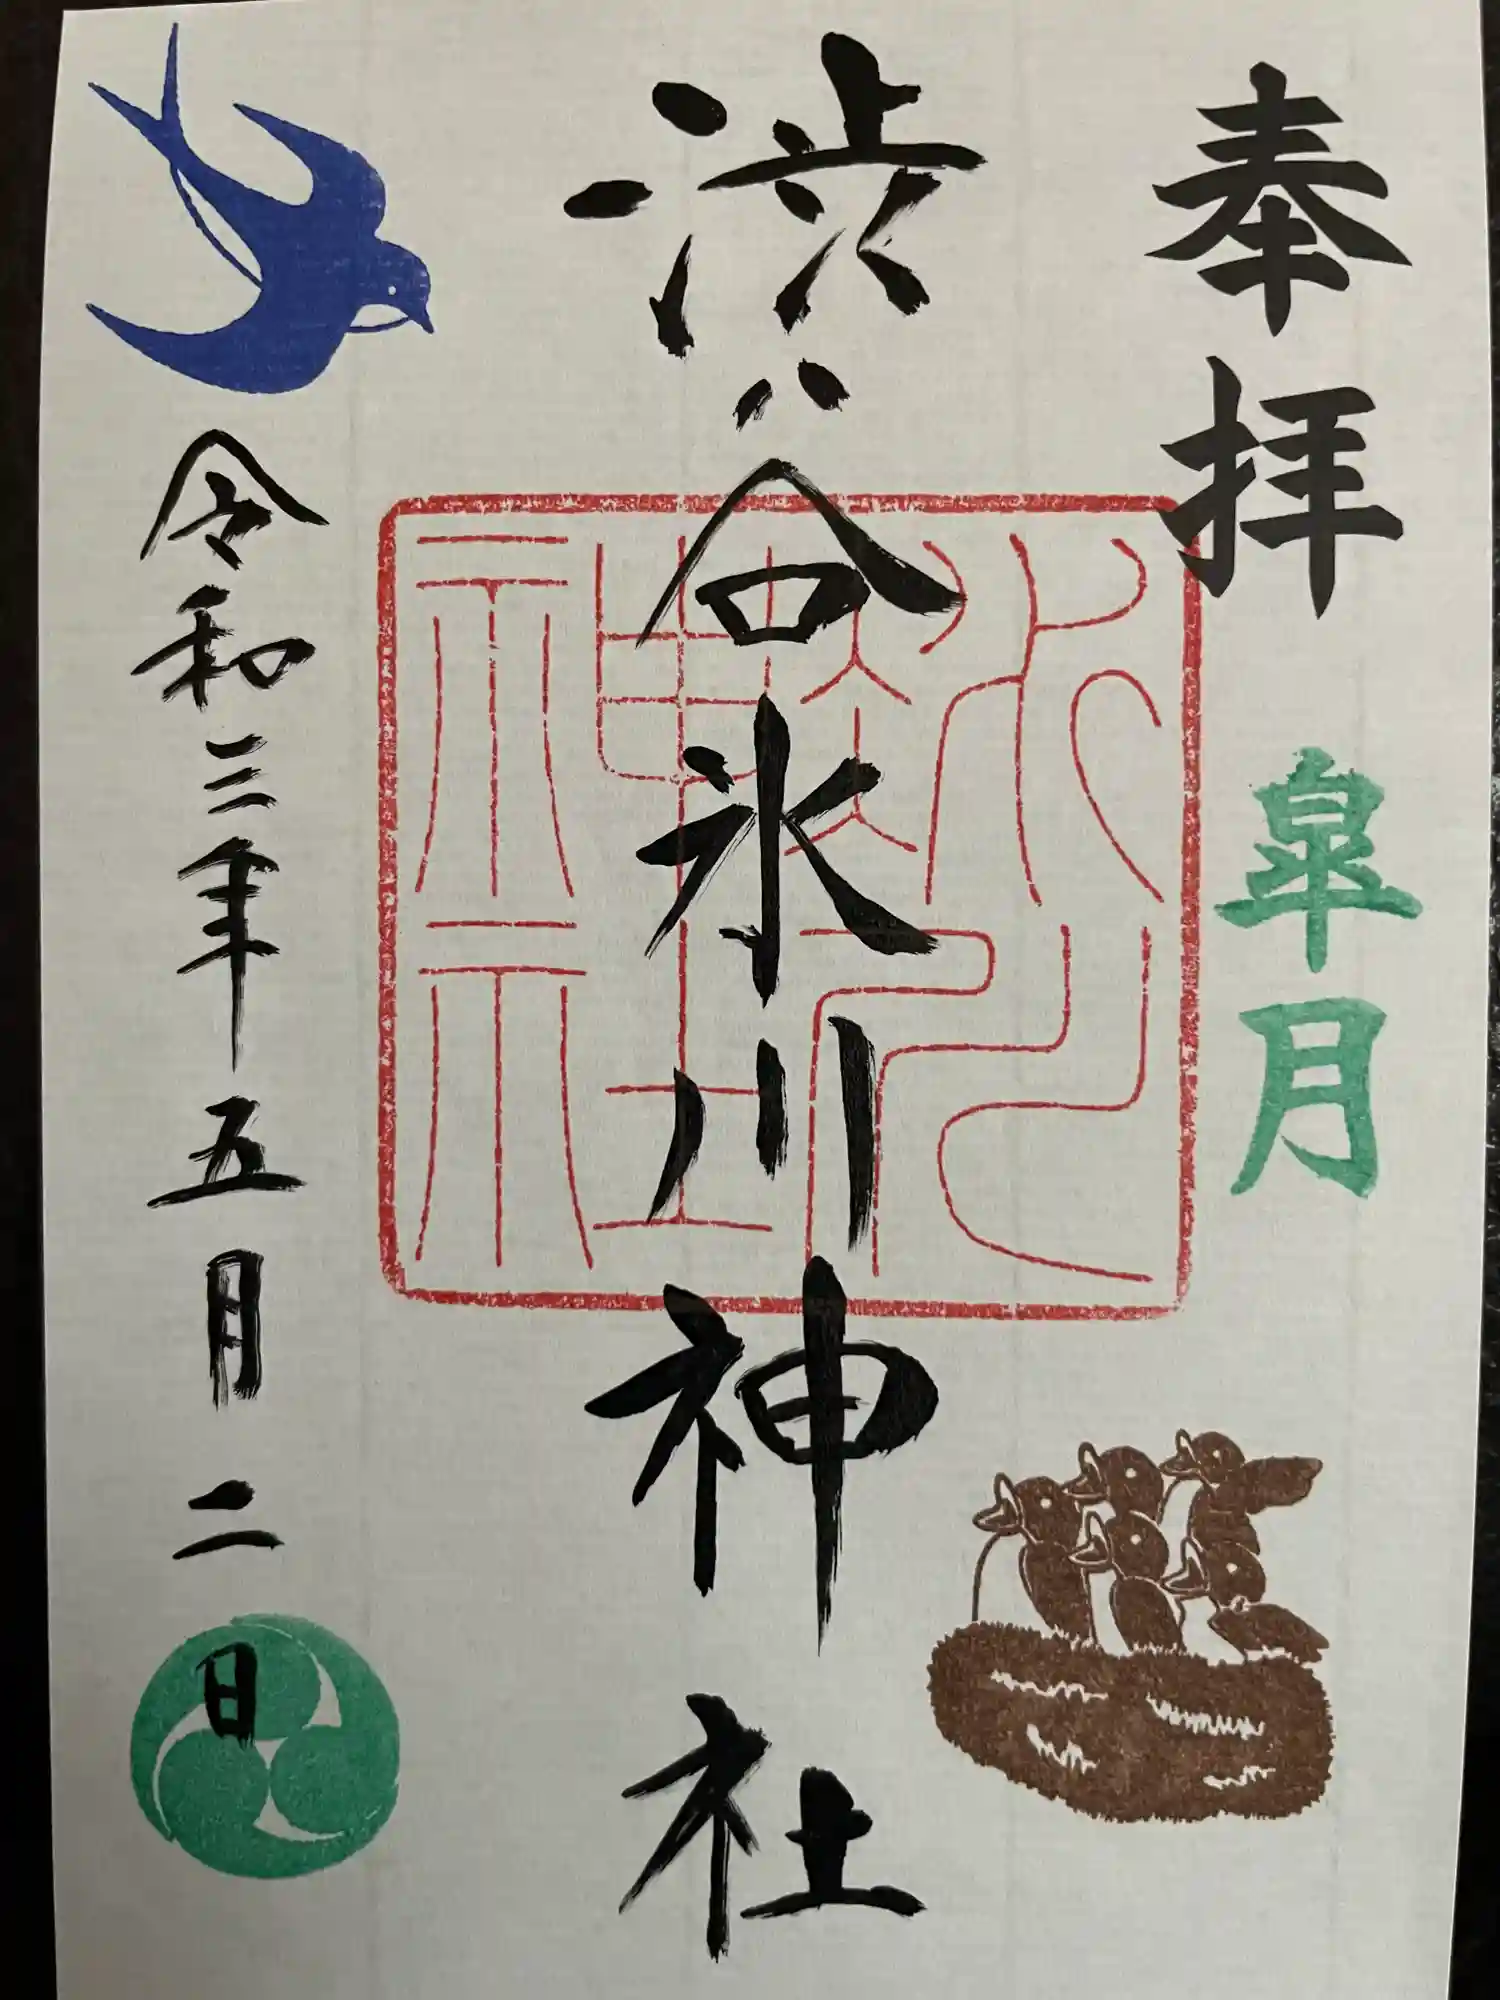 奉拝
皐月
渋谷氷川神社
氷川之印
神社
令和三年五月二日